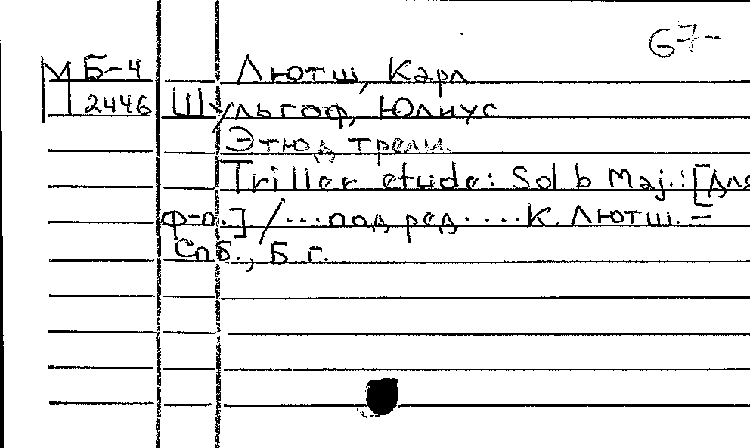 67-
М Б-4 Лютш, Карл
2446 Шульгоф, Юлиус
Этюд трели.
Triller etude: Sol b Maj.: [Для
ф-п.] /...под ред.....К. Лютш. –
Спб., Б. г.